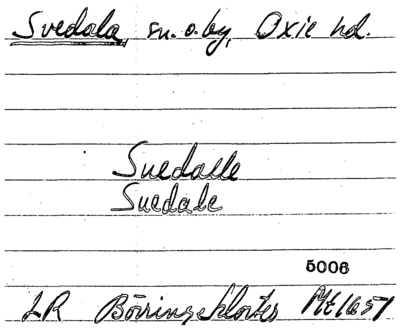 Svedala, sn. o. by, Oxie hd.
Suedalle
Suedale
5006
LR Börringekloster ME 1651